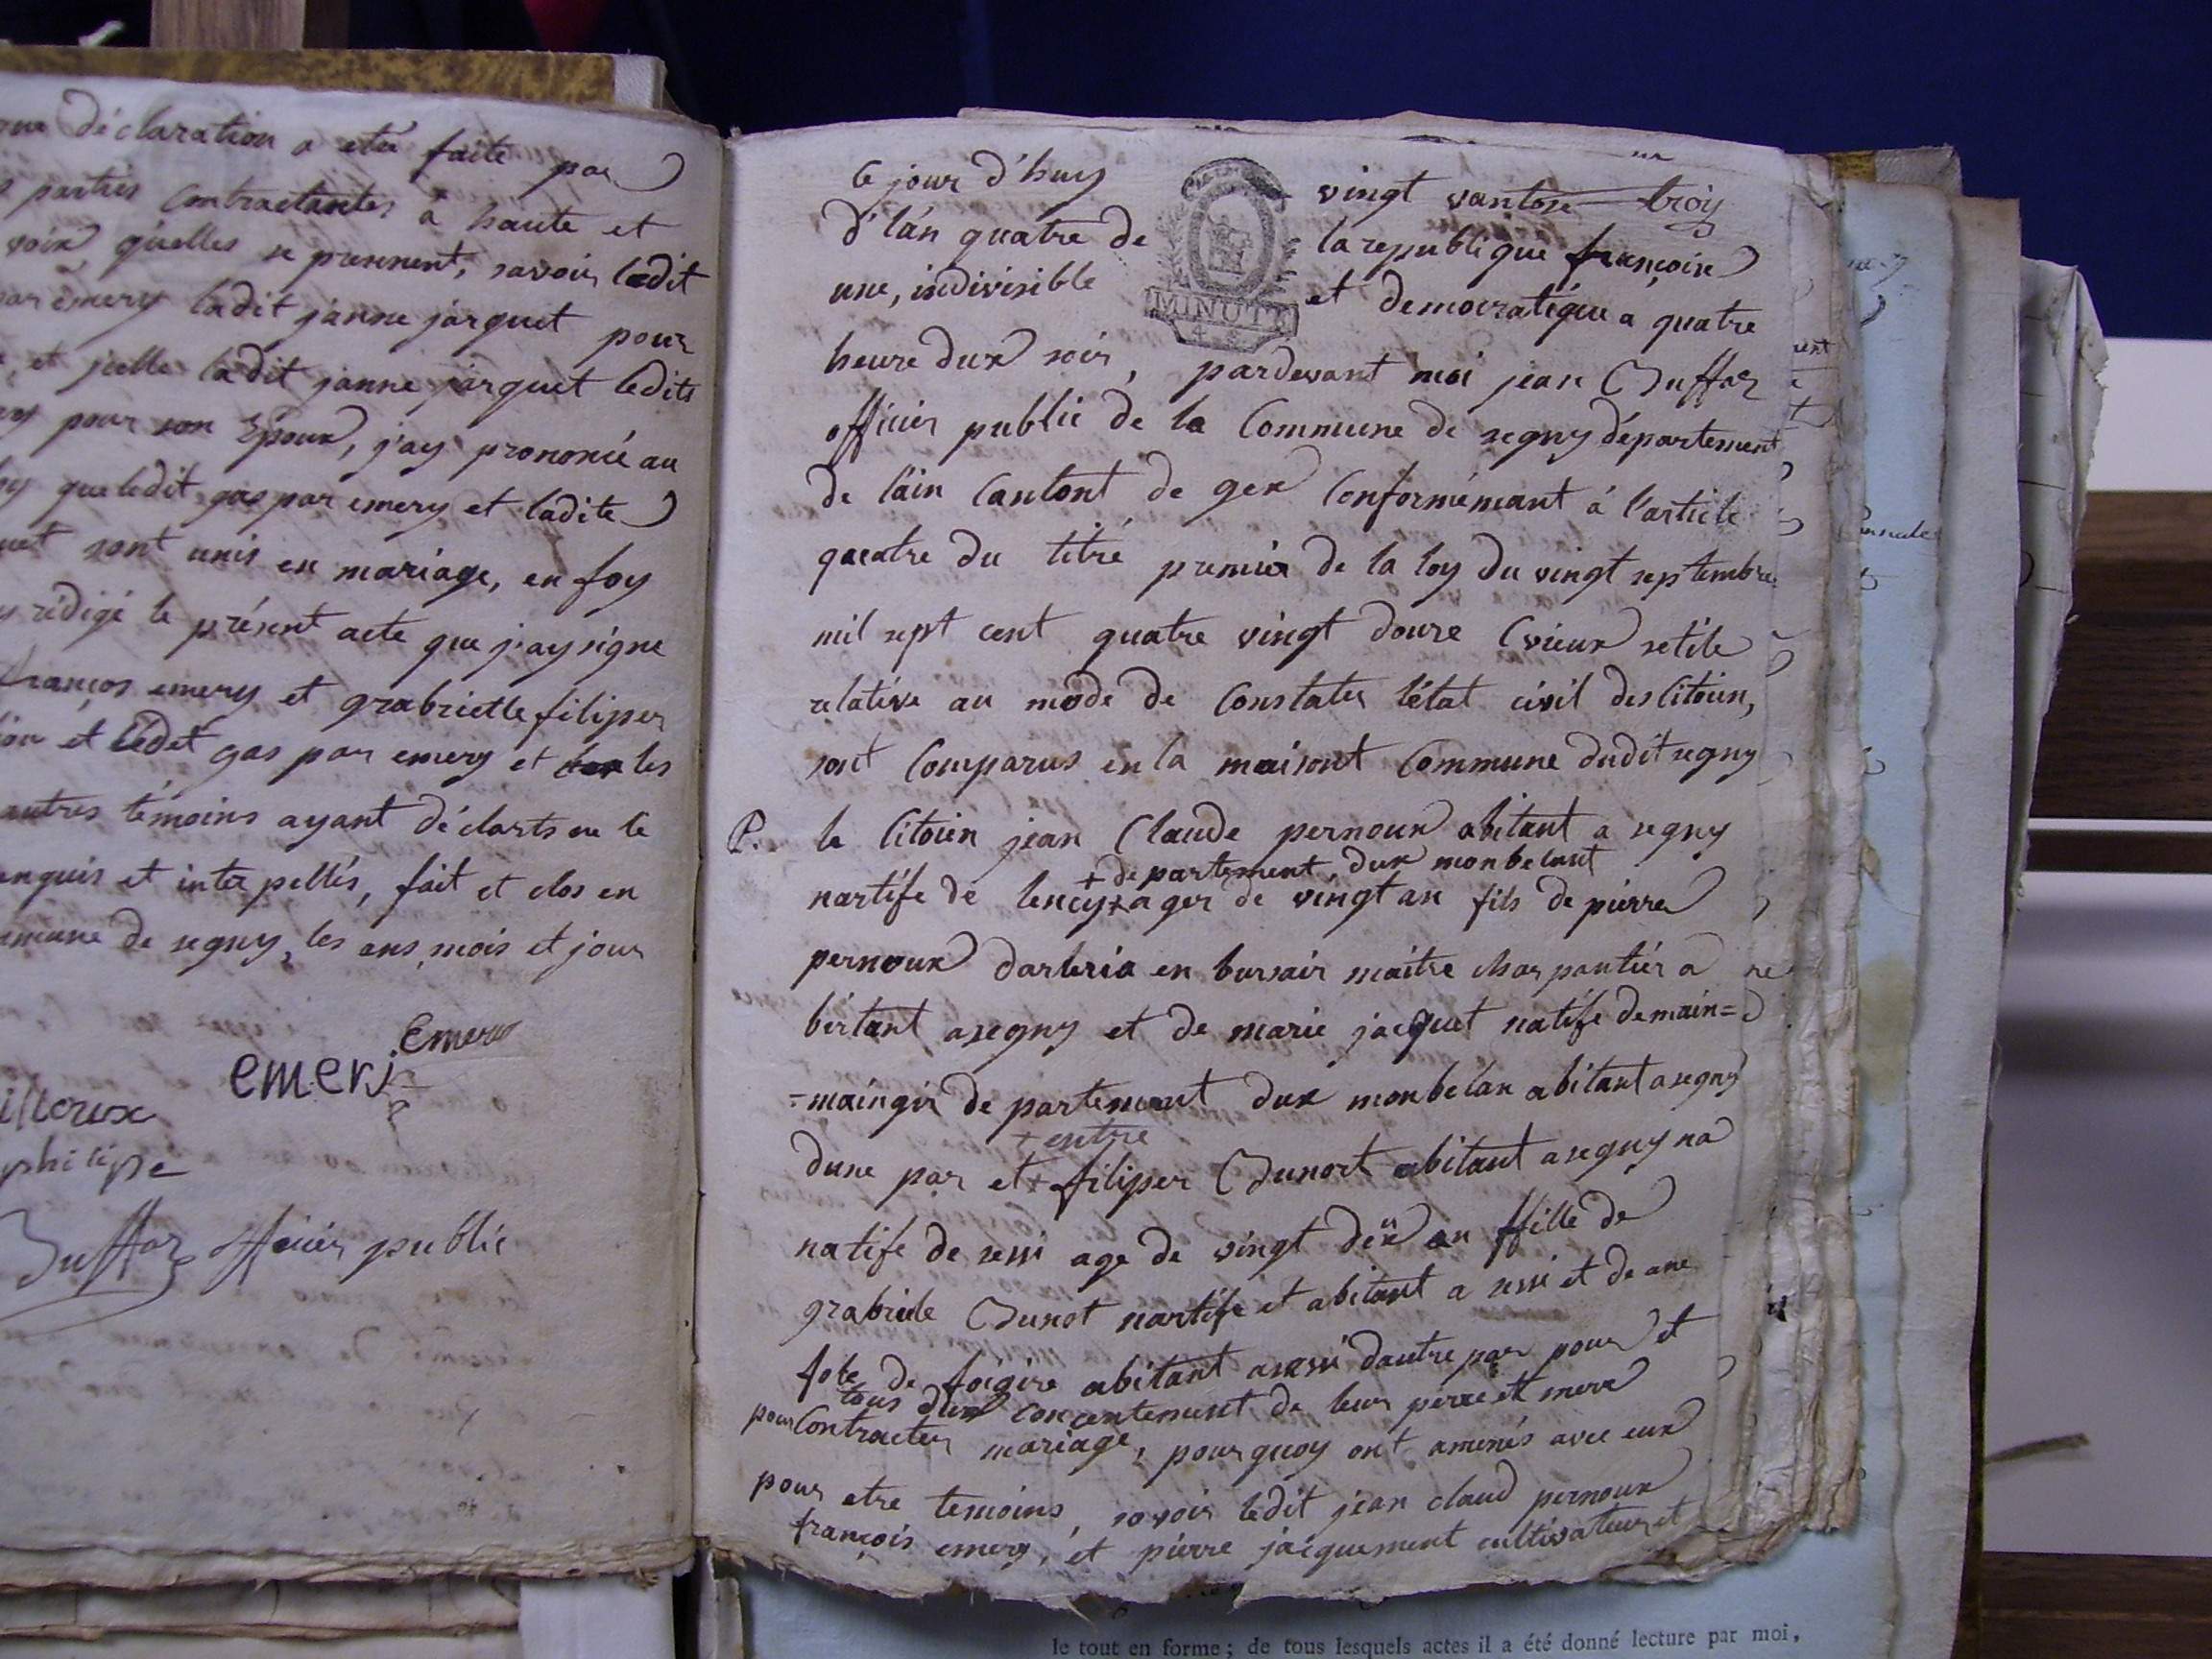 déclaration a eté faite par
partiés Contractantes a haute et
voix quelles se prennent, savoir ledit
emery ladit janne jarquet pour
et jcelle ladit janne jarquet ledits
pour son Epoux, j'ay prononcé au
que ledit gaspar emery et ladite
sont unis en mariage, en foy
rédigé le présent acte que j'ay signe
franços emery et grabrielle filiper
et ledet gas par emery et les
autres témoins ayant déclarts ne le
enquis et inter pellés, fait et clos en
de segny, les ans mois et jour
emerj
philipe
Duffar officier public
le jour d'huy vingt vantose troy
d'lán quatre de la republique françoise
une, indivisible et democratique a quatre
MINUTE
heure dux soir, pardevant moi jean Duffar
officier public de la Commune de segny département
de l'ain Cantont de gex Conformémant á l'article
quatre du titre premier de la loy du vingt septembre
mil sept cent quatre vingt douze (vieux setile
relative au mode de Constater l'état civil des Citoien,
sont Comparus en la maisont Commune dudit segny
P. le Citoien jean Claude pernoux abitant a segny
+ de partement dux monbelant
nartife de lency + ager de vingt an fils de pierre
pernoux darleria en bursair maitre charpantier a
bitant a segny et de marie jacquet natife de main=
=maingir de partement dux monbelan abitant a segny
+ entre
dune par et + filiper Dunort abitant a segny na
natife de sessi age de vingt deux an ffille de
grabriele Dunot nartife et abitant a sessi et de ane
fole de foigire abitant a sessi dautre par pour et
tous dux concentement de leur perre et merre
pour Contracter mariage, pourquoy ont amenés avec eux
pour etre temoins, savoir ledit jean claud pernoux
françois emery, et pierre jacquement cultivateur et
le tout en forme ; de tous lesquels actes il a été donné lecture par moi,